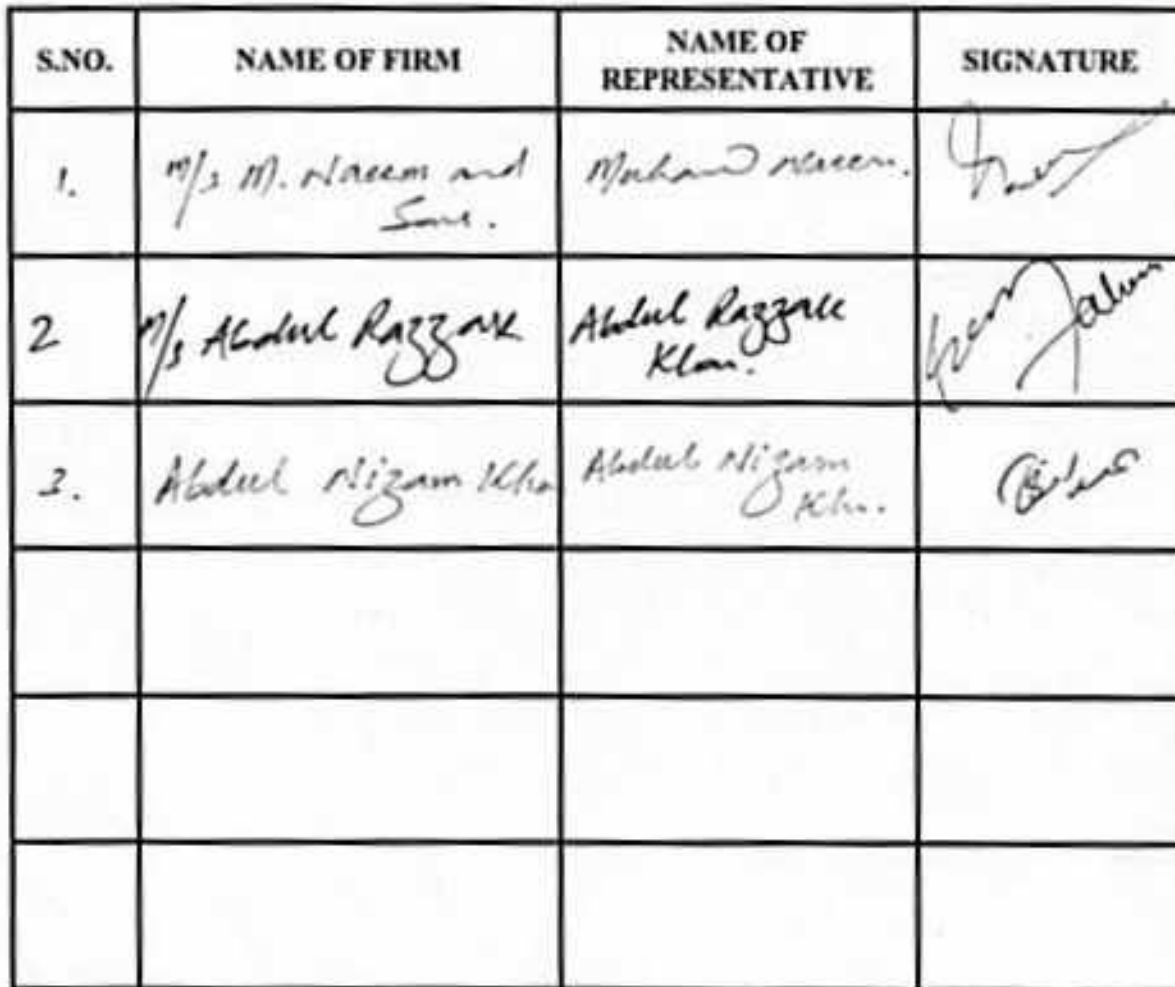 S.NO. NAME OF FIRM NAME OF REPRESENTATIVE SIGNATURE
1. M/s M. Naeem and
Sons.
Naeem.
2 M/s Abdul Razzak
Abdul Razzak
Khan.
3. Abdul Nizam Khan
Abdul Nizam
Khan.